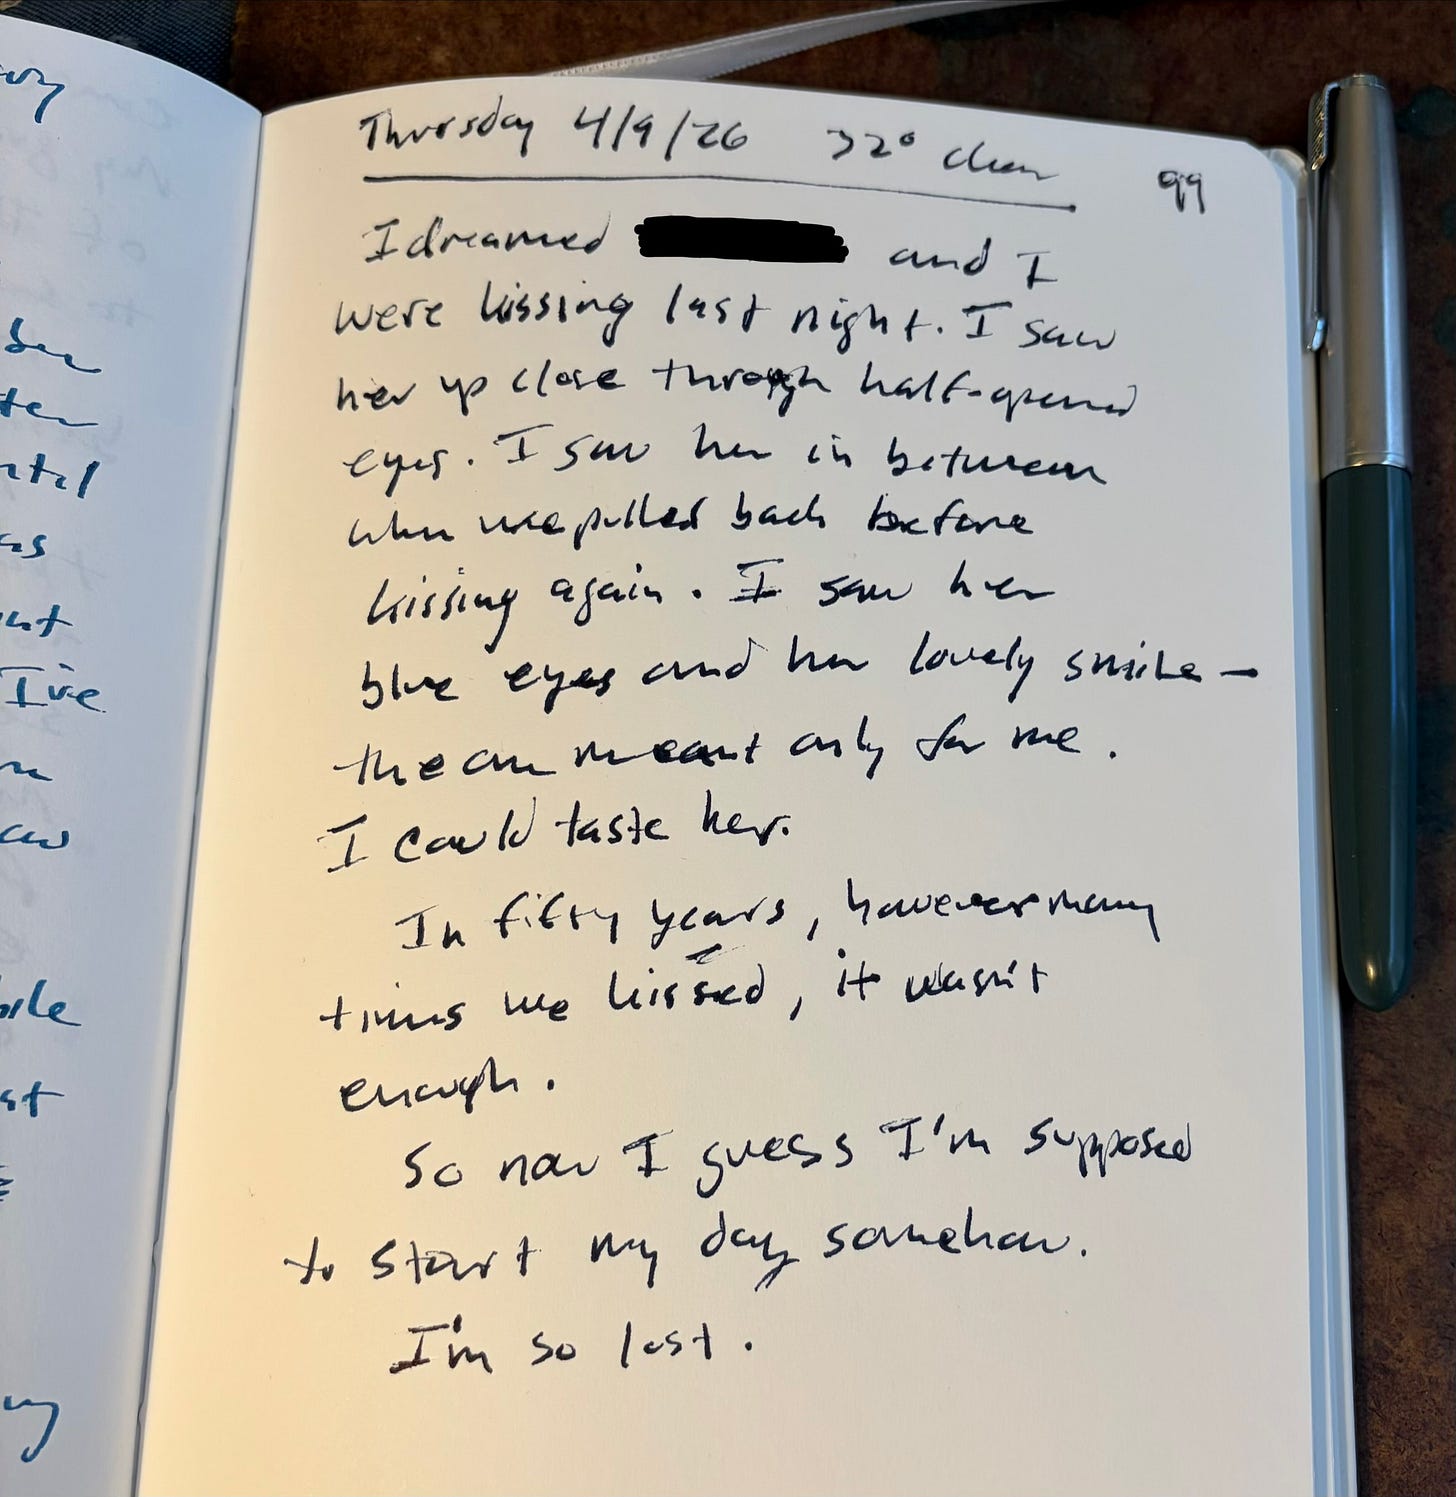 Thursday 4/9/26 32° clear
99
I dreamed and I
were kissing last night. I saw
her up close through half-opened
eyes. I saw her in between
when we pulled back before
kissing again. I saw her
blue eyes and her lovely smile—
the one meant only for me.
I could taste her.
In fifty years, however many
times we kissed, it wasn't
enough.
So now I guess I'm supposed
to start my day somehow.
I'm so lost.
ntal
I've
st